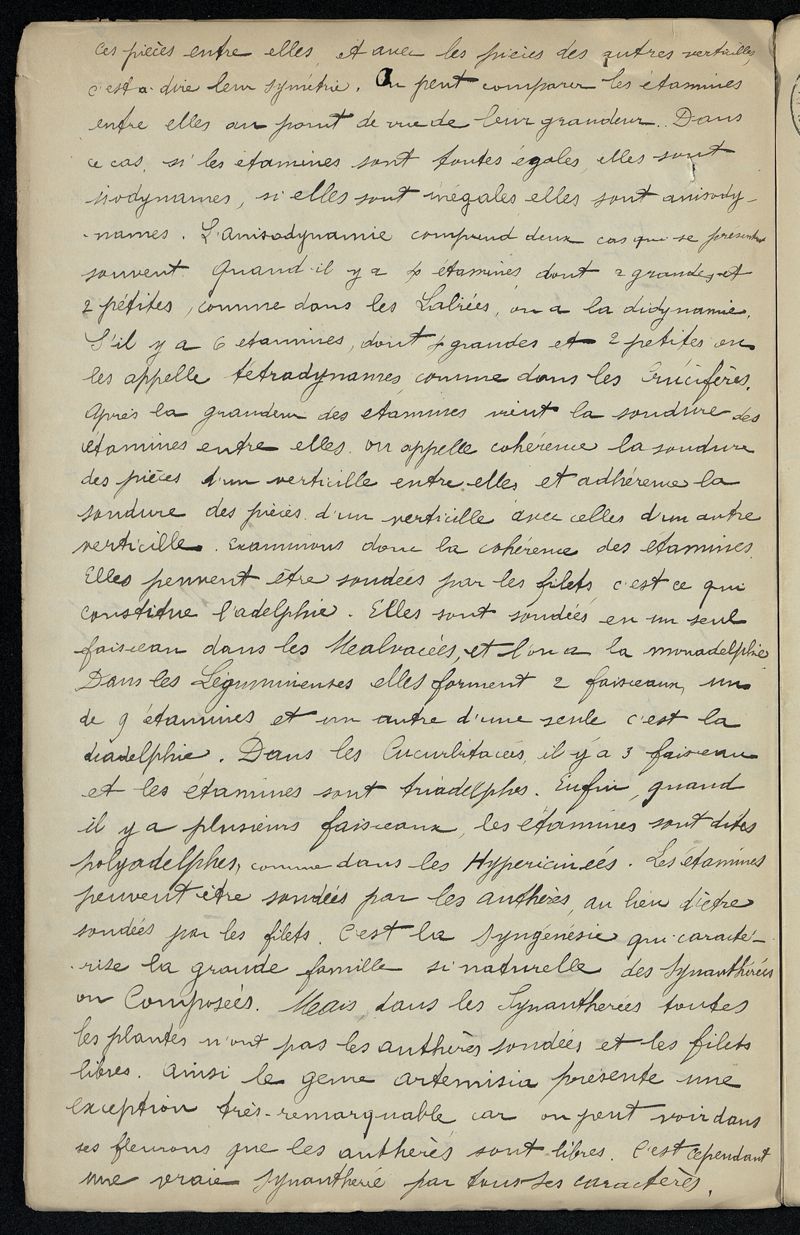 ces pièces entre elles, et avec les pièces des autres verticilles,
c'est-a-dire leur symétrie. On peut comparer les étamines
entre elles au point de vue de leur grandeur. Dans
ce cas, si les étamines sont toutes égales, elles sont
isodynames, si elles sont inégales elles sont anisody-
-names. L'anisodynamie comprend deux cas qui se présentent
souvent. Quand il y a 4 étamines dont 2 grandes et
2 pétites, comme dans les Labiées, on a la didynamie.
S'il y a 6 etamines, dont 4 grandes et 2 petites on
les appelle tétradynames, comme dans les Crucifères.
Après la grandeur des etamines vient la soudure des
étamines entre elles. On appelle cohérence la soudure
des pièces d'un verticille entre elles et adhérence la
soudure des pièces d'un verticille avec celles d'un autre
verticille. Examinons donc la cohérence des etamines.
Elles peuvent être soudées par les filets, c'est ce qui
constitue l'adelphie. Elles sont soudées en un seul
faisceau dans les Malvacées, et l'on a la monadelphie
Dans les Légumineuses elles forment 2 faisceaux, un
de 9 étamines et un autre d'une seule c'est la
diadelphie. Dans les Cucurbitacées, il y a 3 faisceau
et les étamines sont triadelphes. Enfin, quand
il y a plusieurs faisceaux, les étamines sont dites
polyadelphes, comme dans les Hypericinées. Les étamines
peuvent être soudées par les anthères, au lieu d'être
soudées par les filets. C'est la Syngénésie qui caracté-
-rise la grande famille si naturelle des Synanthérées
ou Composées. Mais dans les Synantherées toutes
les plantes n'ont pas les anthères soudées et les filets
libres. Ainsi le genre artemisia présente une
exception très-remarquable car on peut voir dans
ses fleurons que les anthères sont libres. C'est cependant
une vraie Synanthérée par tous ses caractères.